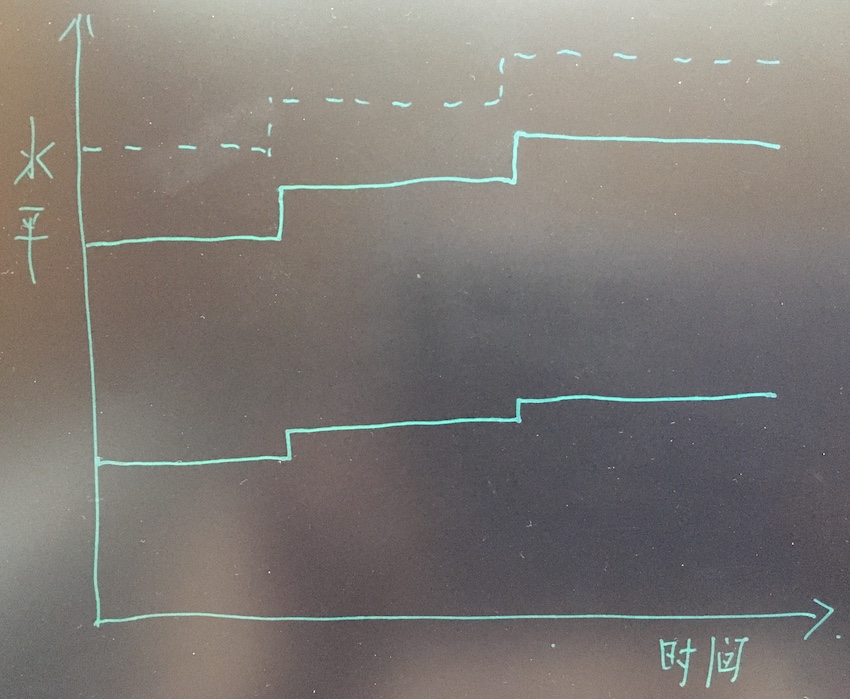 水平
时间